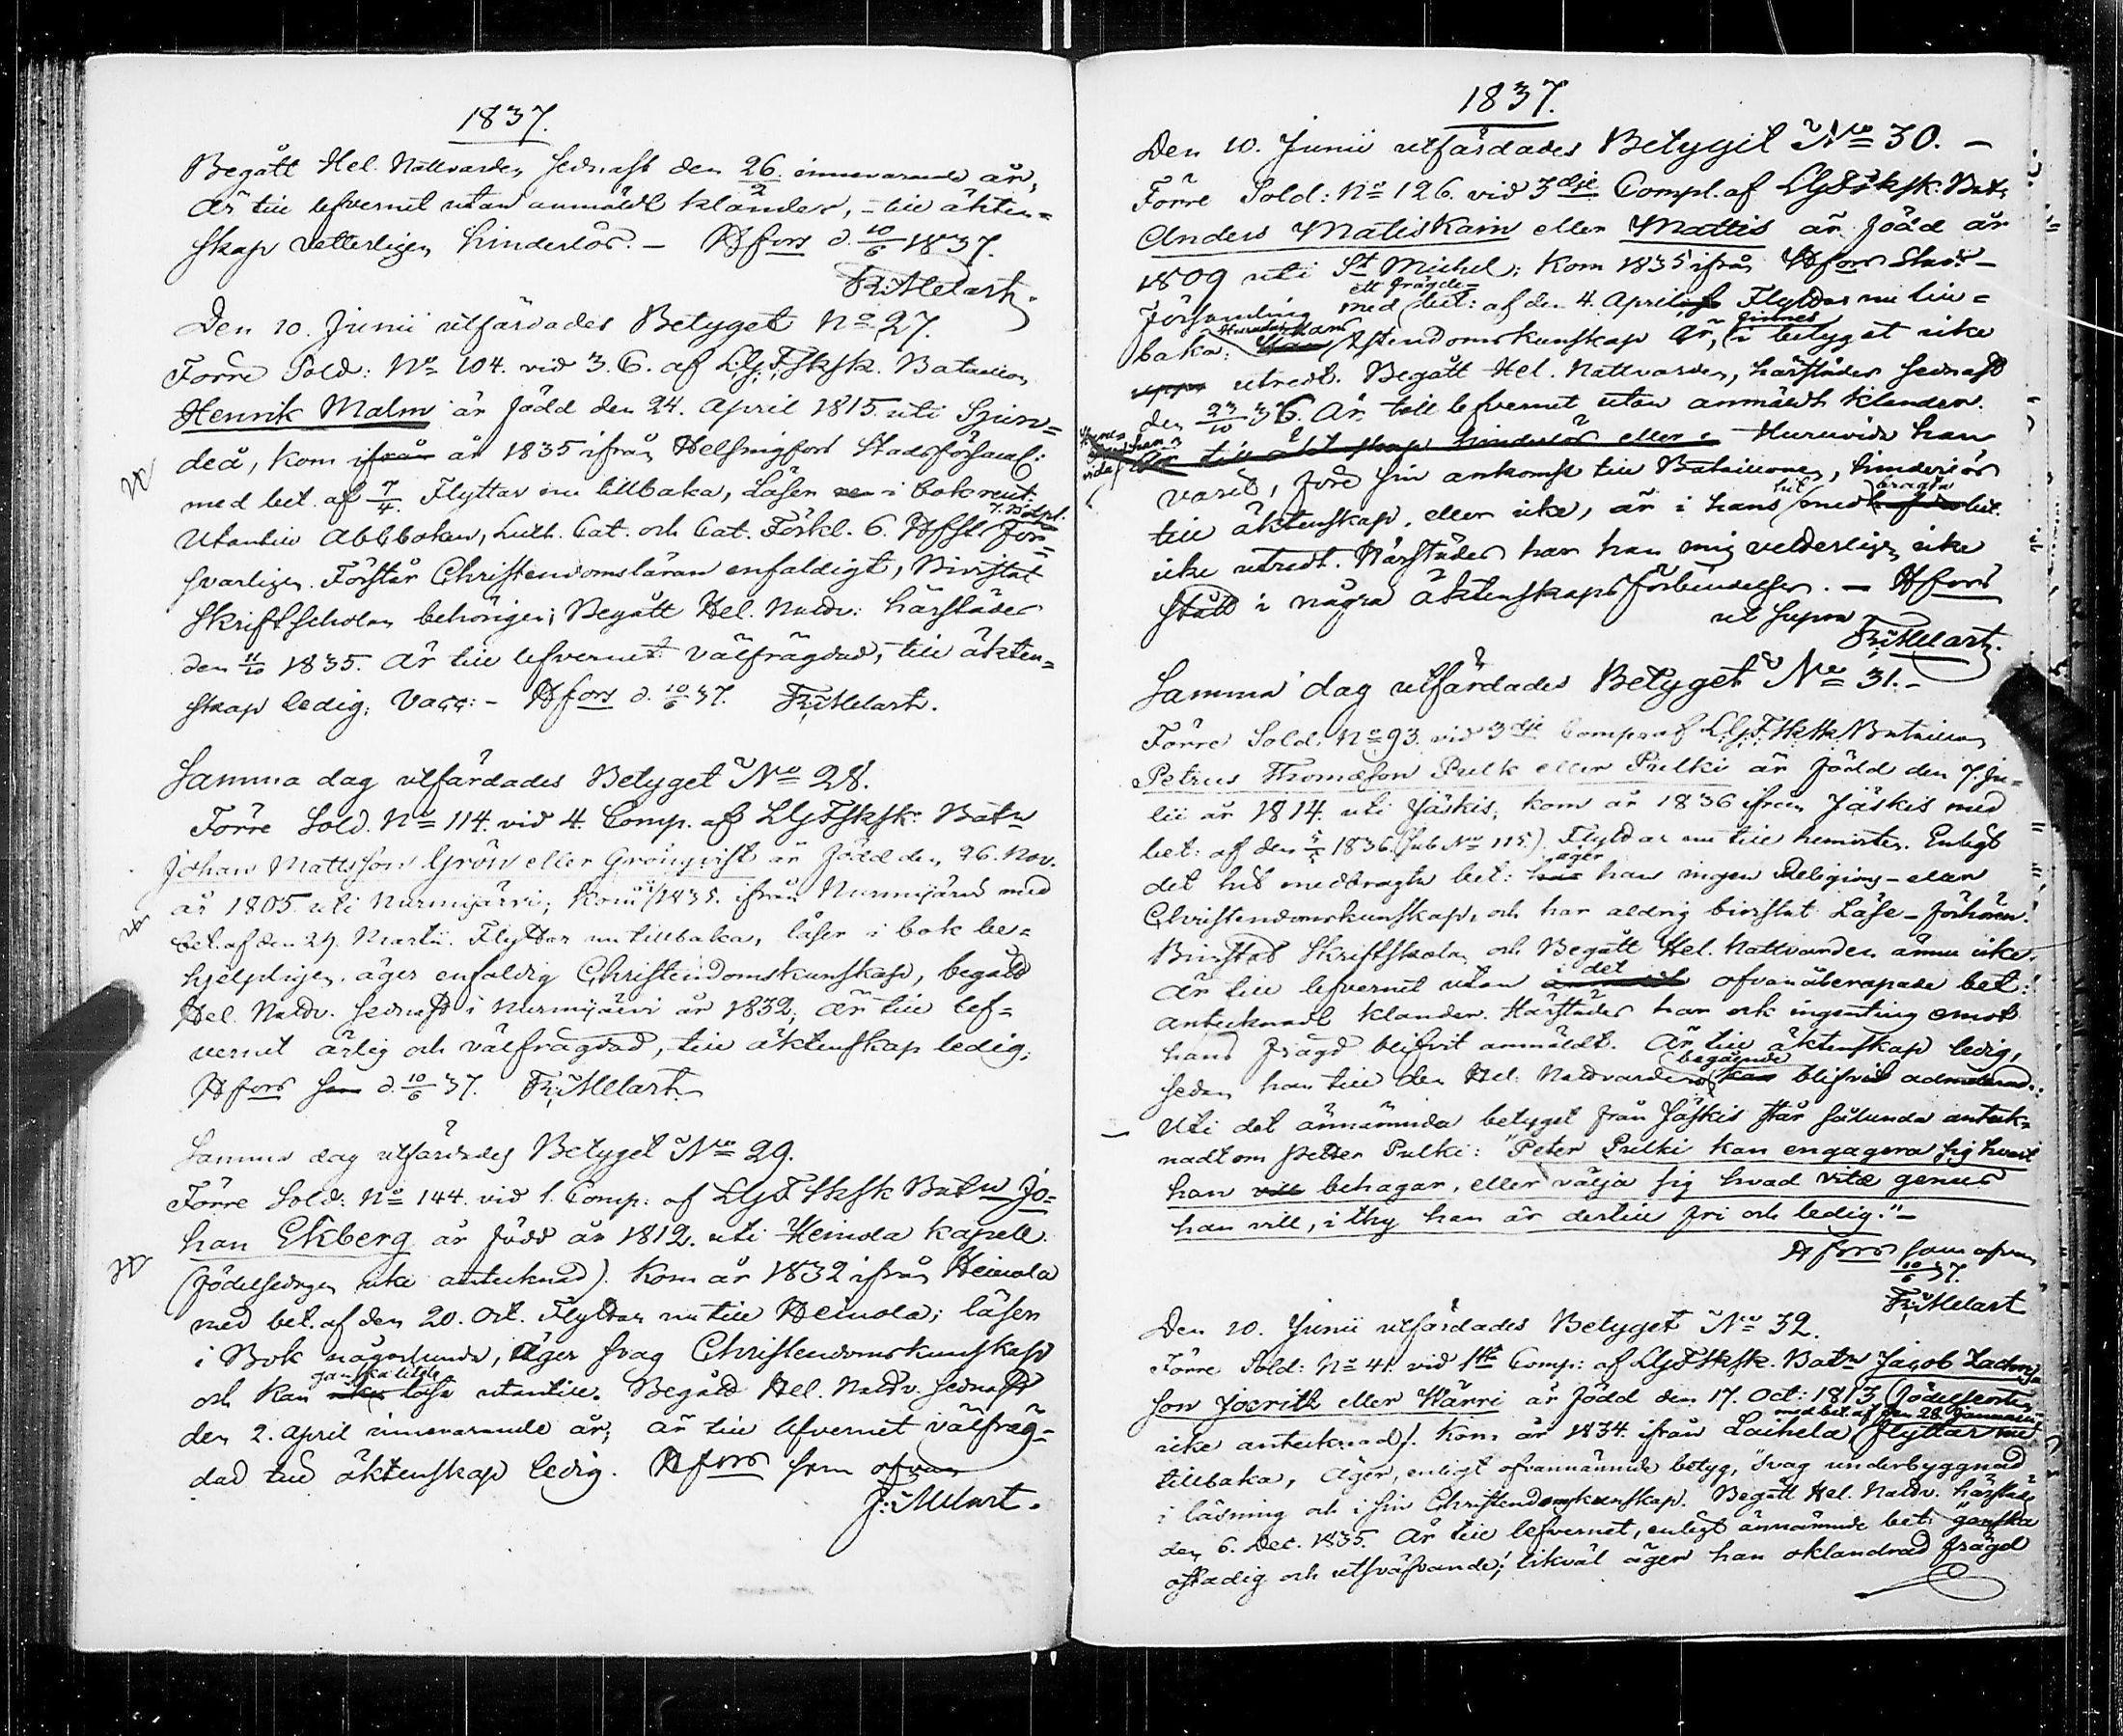 1837.
Begått Hel. Nattvarden sednast den 26/2 innevarande år,
Är till lefvernet utan anmäldt klander, – till äkten=
skap vetterligen hinderlös. – Hfors d. 10/6 1837.
Fr. Melart.
Den 10. Junii utfärdades Betyget No 27.
Förre Sold: No 104. vid 3. C. af LGFSksk. Bataillon
Henrik Malm är född den 24. April 1815 uti Sjun=
deå, kom ifrån år 1835 ifrån Helsingfors Stadsförsaml:
med bet. af 7/4. Flyttar nu tillbaka, Läser i bok rent.
Utantill Abcboken, Luth. Cat. och Cat. Förkl. 6. Hfst. för=
svarligen. Förstår Christendomsläran enfaldigt, Bivistat
Skriftscholan behörigen; Begått Hel. Nattv: härstädes
den 11/10 1835. Är till lefvernet välfrägdad, till äkten=
skap ledig; Vacc: – Hfors d. 10/6 37. Fr. Melart.
Samma dag utfärdades Betyget No 28.
Förre Sold. No 114. vid 4. Comp. af LGFSksk. Batn
Johan Mattsson Grön eller Grönqvist är född den 26. Nov.
år 1805. uti Nurmijärvi; Kom 1835. ifrån Nurmijärvi med
bet. af den 29. Martii. Flyttar nu tillbaka, läser i bok be=
hjelpligen. äger enfaldig Christendomskunskap, begått
Hel. Nattv. sednast i Nurmijärvi år 1832; är till lef=
vernet ärlig och välfrägdad, till äktenskap ledig;
Hfors d. 10/6 37. Fr. Melart
Samma dag utfärdades Betyget No 29.
Förre Sold: No 144. vid 1. Comp. af LGFSksk Batn Jo=
han Ekberg är född år 1812. uti Heinola kapell.
(födelsedagen icke antecknad). Kom år 1832 ifrån Heinola
med bet. af den 20. Oct. Flyttar nu till Heinola; läser
i Bok någorlunda, Äger svag Christendomskunskap
och kan ganska litet läsa utantill. Begått Hel. Nattv. sednast
den 2. April innevarande år; är till lefvernet välfräg=
dad till äktenskap ledig. Hfors som ofvan
Fr. Melart.
1837.
Den 10. Junii utfärdades Betyget No 30. –
Förre Sold: No 126. vid 3dje Comp. af LGFSksk: Batn
Anders Matiskain eller Mattis är född år
1809 uti St Michel; Kom 1835 ifrån Hfors Stads
församling med ett frägde= bet: af den 4. April. Flyttar nu till=
baka: Hurudan hans Xstendomskunskap är, finnes i betyget icke
utredt. Begått Hel. Nattvarden, härstädes sednast
den 23/10 36. Är till lefvernet utan anmäldt klander.
Är till äktenskap hinderlös eller Huruvida han
varit, före sin ankomst till Bataillonen, hinderlös
till äktenskap, eller icke, är i hans hit medbragta bet.
icke utredt. Härstädes har han mig vetterligen icke
stått i några äktenskapsförbindelser. – Hfors
ut supra
Fr. Melart.
Samma dag utfärdades Betyget No 31. –
Förre Sold: No 93. vid 3dje Comp af LGFSksk Bataillon
Petrus Thomæson Pulk eller Pulki är född den 7. Ju=
lii år 1814. uti Jäskis, kom år 1836 ifrån Jäskis med
bet: af den 5/5 1836 (sub No 115). Flyttar nu till hemorten. Enligt
det hit medbragta bet: äger han ingen Religions- eller
Christendomskunskap, och har aldrig bivistat Läse-förhören.
Bivistat Skriftskolan och Begått Hel. Nattvarden ännu icke.
Är till lefvernet utan i det ofvanåberopade bet:
antecknadt klander. Härstädes har ock ingenting emot
hans frägd blifvit anmäldt. Är till äktenskap ledig,
sedan han till den Hel: Nattvardens begående blifvit admitterad.
Uti det ännämnda betyget från Jäskis står sålunda anteck=
nadt om Petter Pulki: "Peter Pulki kan engagera sig hvart
han vill behagar, eller välja sig hvad vitæ genus
han vill, i thy han är dertill fri och ledig." –
Hfors som ofvan
10/6 37.
Fr. Melart
Den 10. Junii utfärdades Betyget No 32.
Förre Sold: No 41. vid 1sta Comp: af LGFSksk. Batn Jacob Zachris=
son Joerith eller Kärri är född den 17. Oct: 1813 (födelseorten
icke antecknad). Kom år 1834. ifrån Laihela med bet. af den 28. Januarii, flyttar nu
tillbaka, Äger, enligt ofvannämnde betyg, "svag underbyggnad
i läsning och i sin Christendomskunskap. Begått Hel. Nattv. härstädes
den 6. Dec. 1835. Är till lefvernet, enligt ännämnde bet: "ganska
ostadig och utsväfvande; likväl äger han oklandrad frägd